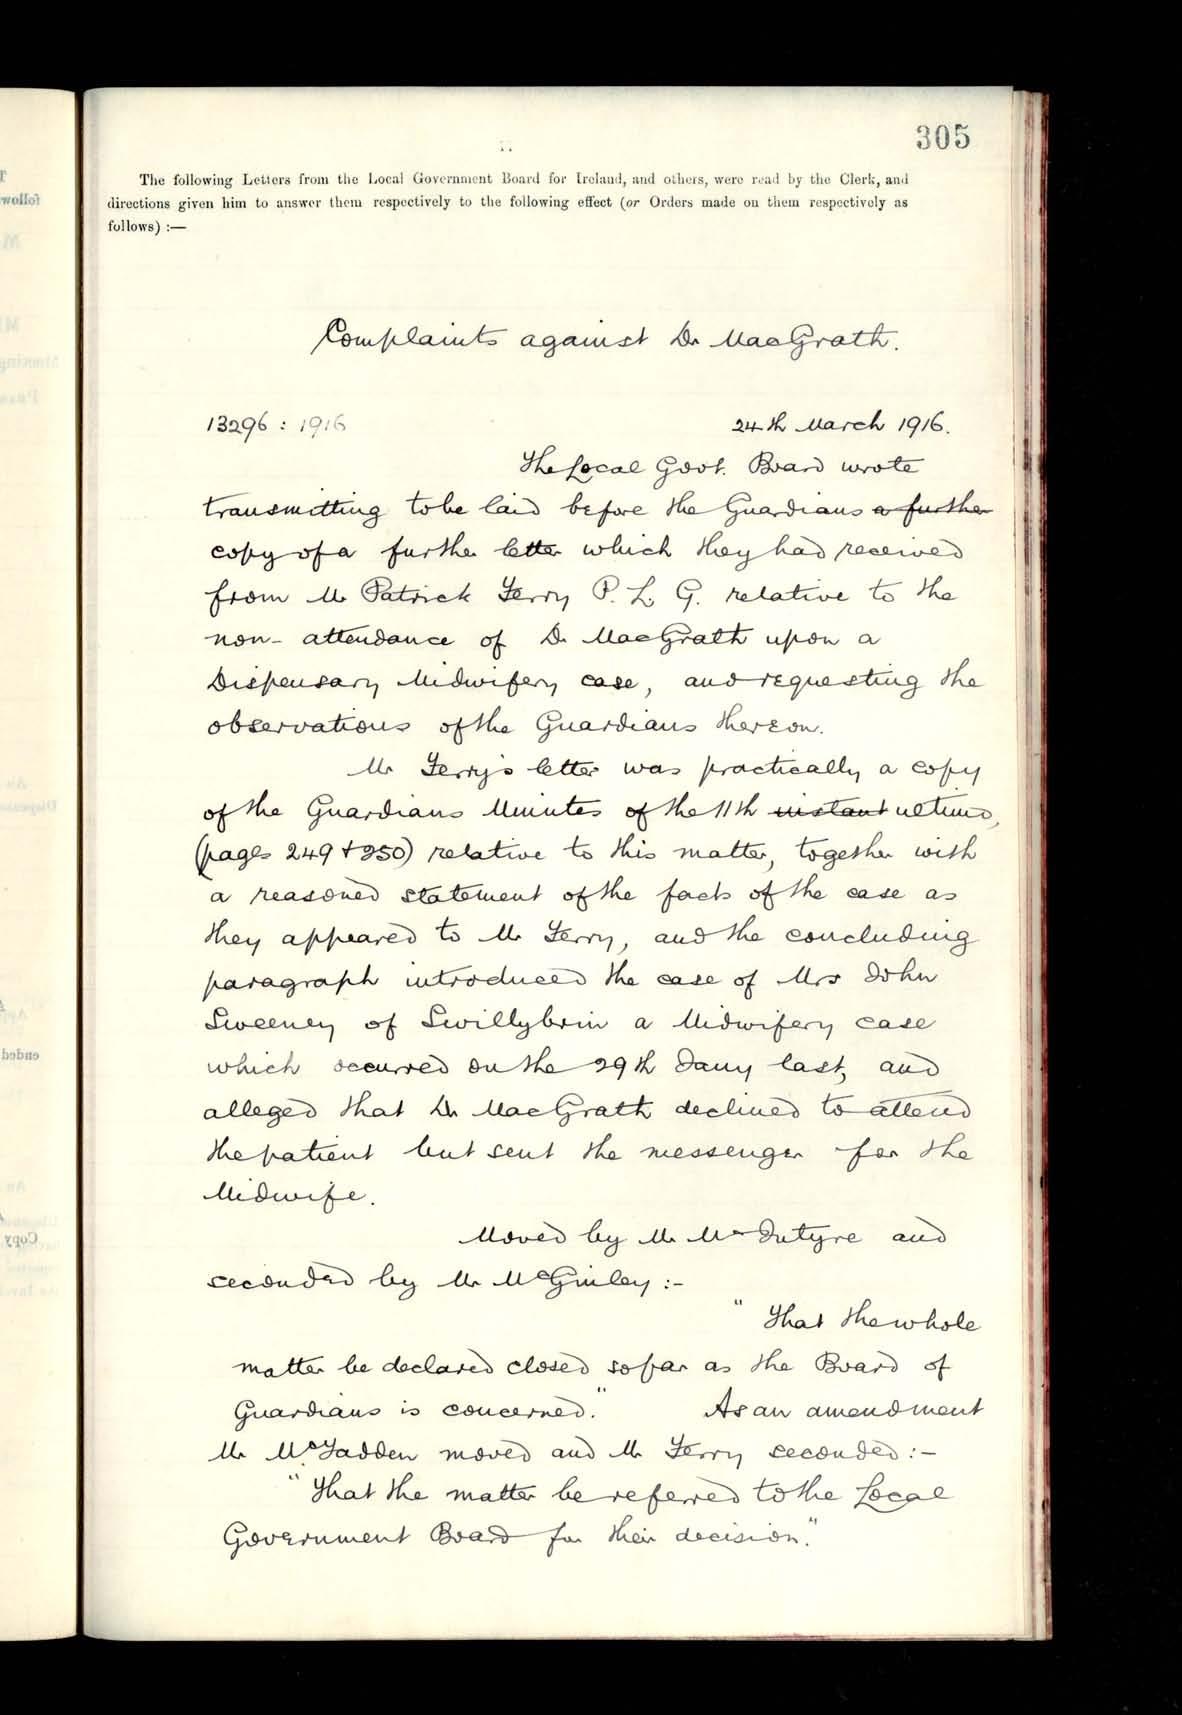 305
The following Letters from the Local Government Board for Ireland, and others, were read by the Clerk, and
directions given him to answer them respectively to the following effect (or Orders made on them respectively as
follows) :—
Complaints against Dr MacGrath.
13296 : 1916 24th March 1916.
The Local Govt. Board wrote
transmitting to be laid before the Guardians a further
copy of a further letter which they had received
from Mr Patrick Ferry P. L. G. relative to the
non-attendance of Dr MacGrath upon a
Dispensary Midwifery case, and requesting the
observations of the Guardians thereon.
Mr Ferry's letter was practically a copy
of the Guardians Minutes of the 11th instant ultimo,
(pages 249 + 250) relative to this matter, together with
a reasoned statement of the facts of the case as
they appeared to Mr Ferry, and the concluding
paragraph introduced the case of Mrs John
Sweeney of Swillybrin a Midwifery case
which occurred on the 29th Jany last, and
alleged that Dr MacGrath declined to attend
the patient but sent the messenger for the
Midwife.
Moved by Mr McIntyre and
seconded by Mr McGinley :-
"That the whole
matter be declared closed so far as the Board of
Guardians is concerned." As an amendment
Mr McFadden moved and Mr Ferry seconded :-
"That the matter be referred to the Local
Government Board for their decision."